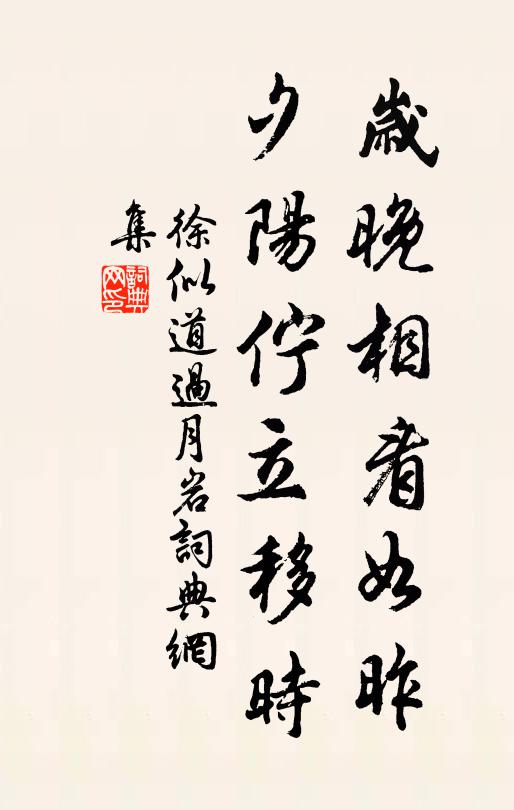 歲晚相看如昨
夕陽佇立移時
徐似道過月岩詞典網
集
詞典網印